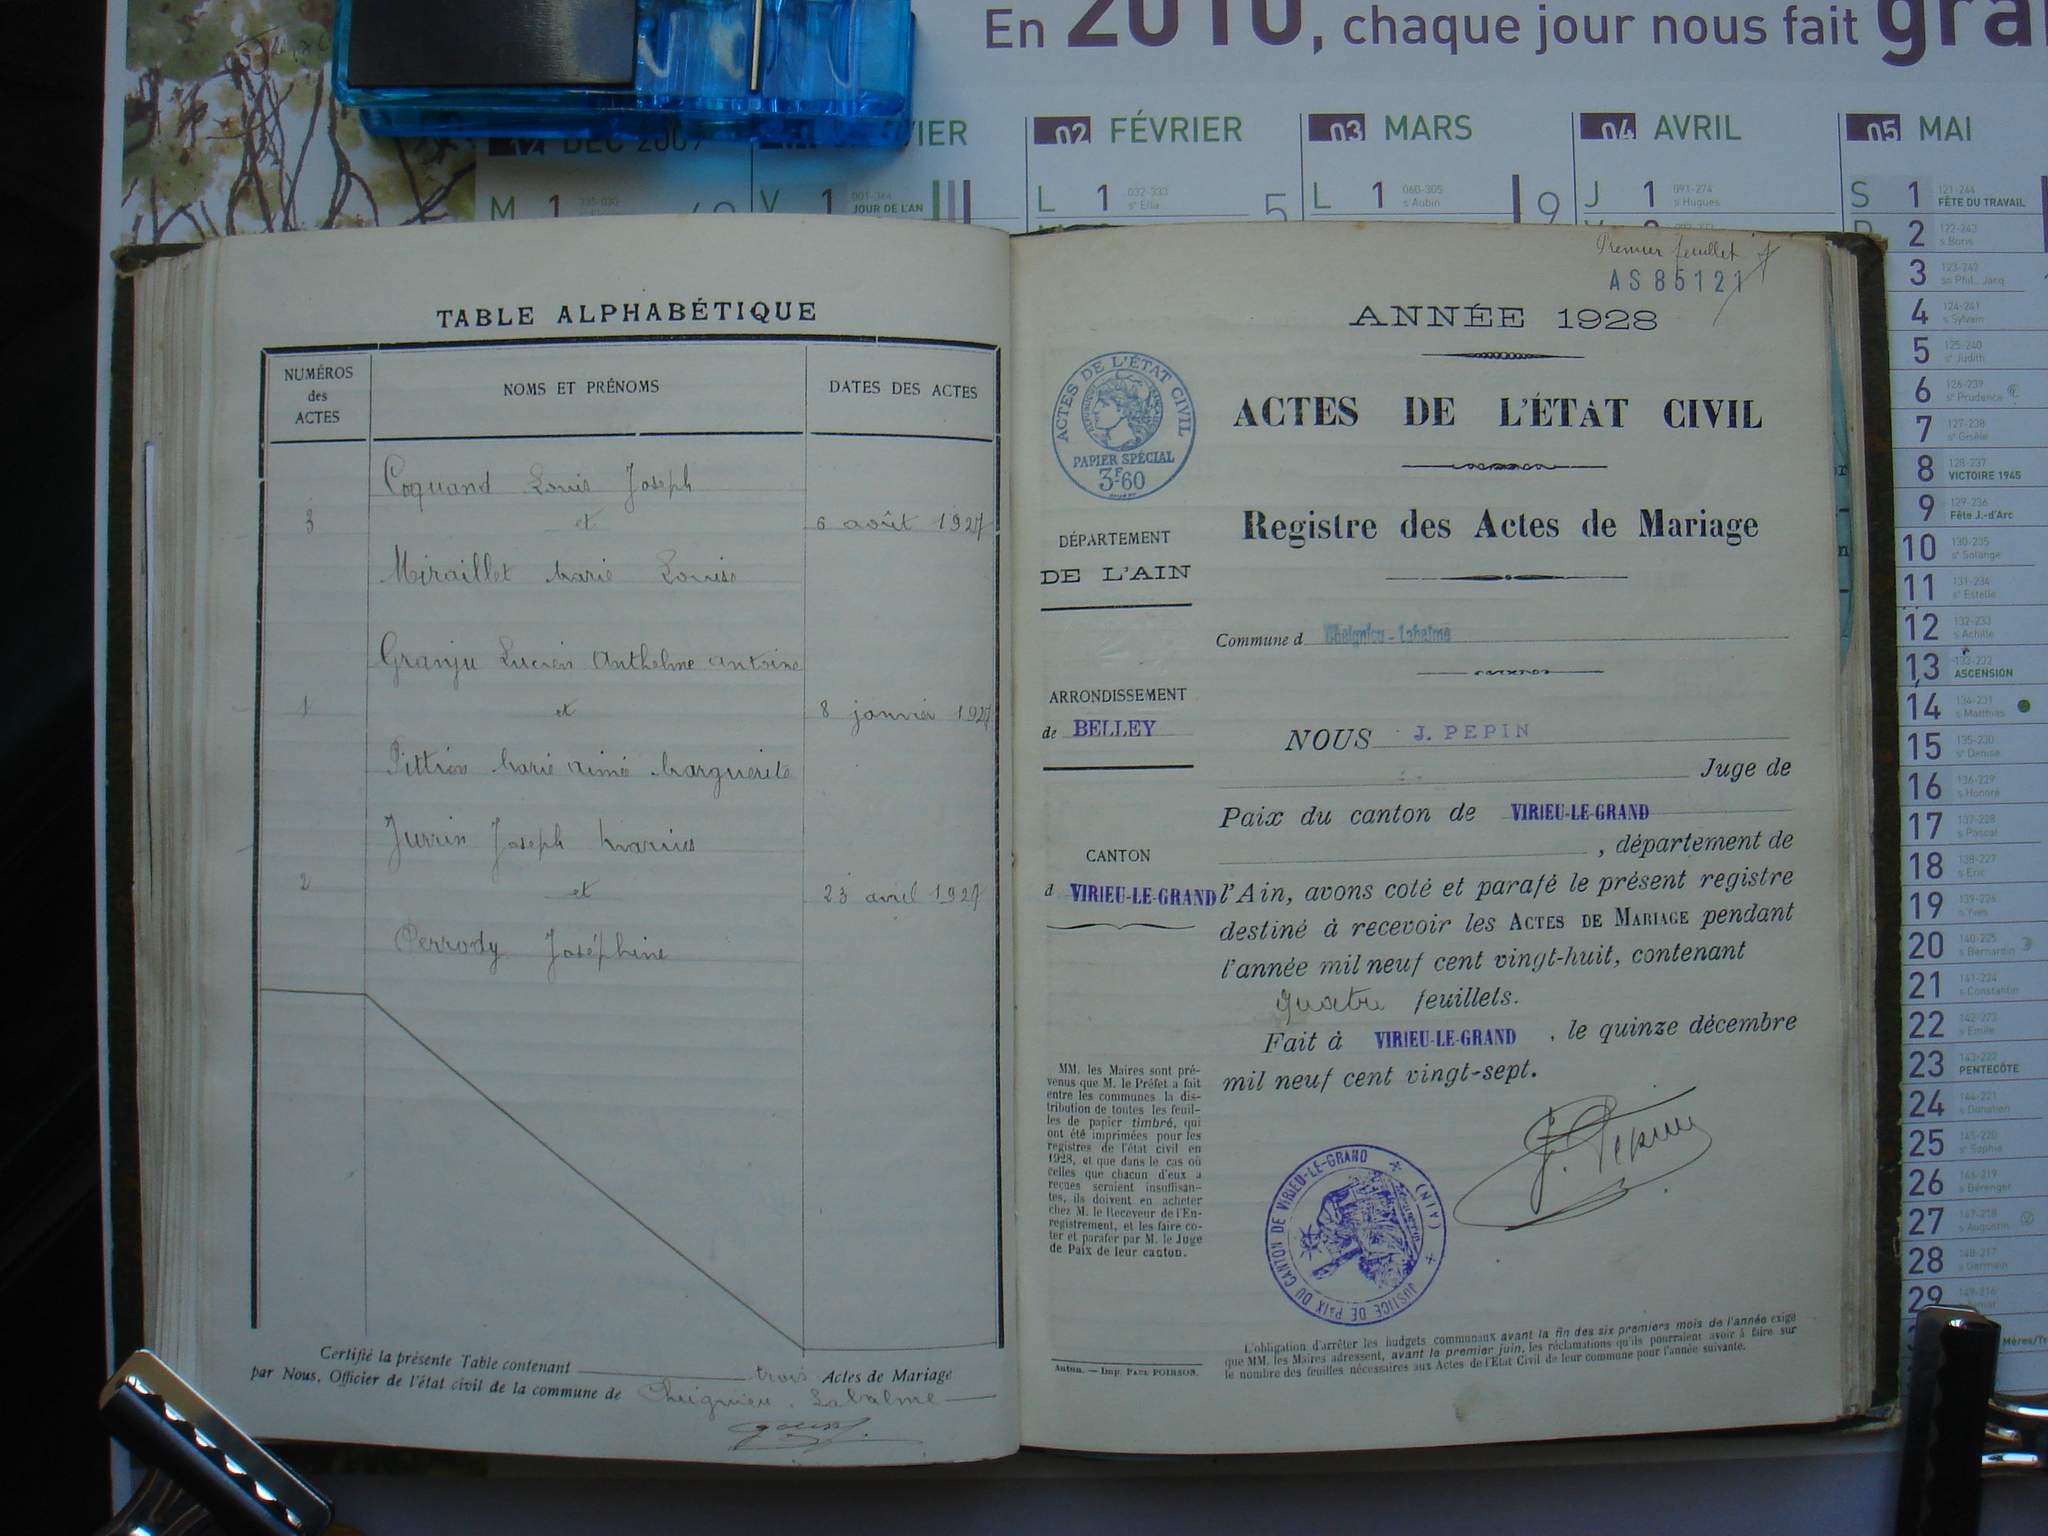 En 2010, chaque jour nous fait
DÉC 2009
02 FÉVRIER
03 MARS
04 AVRIL
05 MAI
M 1
V 1 001-364
JOUR DE L'AN
L 1 032-333
sᵉ Ella
5
L 1 060-305
s Aubin
9
J 1 091-274
s Hugues
S 1 121-244
FÊTE DU TRAVAIL
2 122-243
s Boris
3 123-242
ss Phil., Jacq.
4 124-241
s Sylvain
5 125-240
sᵉ Judith
6 126-239
sᵉ Prudence
7 127-238
sᵉ Gisèle
8 128-237
VICTOIRE 1945
9 129-236
Fête J.-d'Arc
10 130-235
sᵉ Solange
11 131-234
sᵉ Estelle
12 132-233
s Achille
13 133-232
ASCENSION
14 134-231
s Matthias
15 135-230
sᵉ Denise
16 136-229
s Honoré
17 137-228
s Pascal
18 138-227
s Eric
19 139-226
s Yves
20 140-225
s Bernardin
21 141-224
s Constantin
22 142-223
s Emile
23 143-222
PENTECÔTE
24 144-221
s Donatien
25 145-220
sᵉ Sophie
26 146-219
s Bérenger
27 147-218
s Augustin
28 148-217
s Germain
29 149-216
TABLE ALPHABÉTIQUE
NUMÉROS
des
ACTES
NOMS ET PRÉNOMS
DATES DES ACTES
Coquand Louis Joseph
3 et 6 août 1927
Miraillet Marie Louise
Granju Lucien Anthelme Antoine
1 et 8 janvier 1927
Pittion Marie Aimé Marguerite
Jurrin Joseph Marius
2 et 23 avril 1927
Perrody Joséphine
Certifié la présente Table contenant trois Actes de Mariage
par Nous, Officier de l'état civil de la commune de Cheignieu-Labalme
Premier feuillet
AS 85121
ANNÉE 1928
ACTES DE L'ÉTAT CIVIL
PAPIER SPÉCIAL
3F60
ACTES DE L'ÉTAT CIVIL
Registre des Actes de Mariage
DÉPARTEMENT
DE L'AIN
Commune d Cheignieu-Labalme
ARRONDISSEMENT
de BELLEY
NOUS J. PEPIN
Juge de
Paix du canton de VIRIEU-LE-GRAND
, département de
CANTON
d VIRIEU-LE-GRAND
l'Ain, avons coté et parafé le présent registre
destiné à recevoir les ACTES DE MARIAGE pendant
l'année mil neuf cent vingt-huit, contenant
quatre feuillets.
Fait à VIRIEU-LE-GRAND , le quinze décembre
mil neuf cent vingt-sept.
MM. les Maires sont pré-
venus que M. le Préfet a fait
entre les communes la dis-
tribution de toutes les feuil-
les de papier timbré, qui
ont été imprimées pour les
registres de l'état civil en
1928, et que dans le cas où
celles que chacun d'eux a
reçues seraient insuffisan-
tes, ils doivent en acheter
chez M. le Receveur de l'En-
registrement, et les faire co-
ter et parafer par M. le Juge
de Paix de leur canton.
J. Pepin
JUSTICE DE PAIX DU CANTON DE VIRIEU-LE-GRAND (AIN)
Autun. — Imp. PAUL POIRSON.
L'obligation d'arrêter les budgets communaux avant la fin des six premiers mois de l'année exige
que MM. les Maires adressent, avant le premier juin, les réclamations qu'ils pourraient avoir à faire sur
le nombre des feuilles nécessaires aux Actes de l'Etat Civil de leur commune pour l'année suivante.